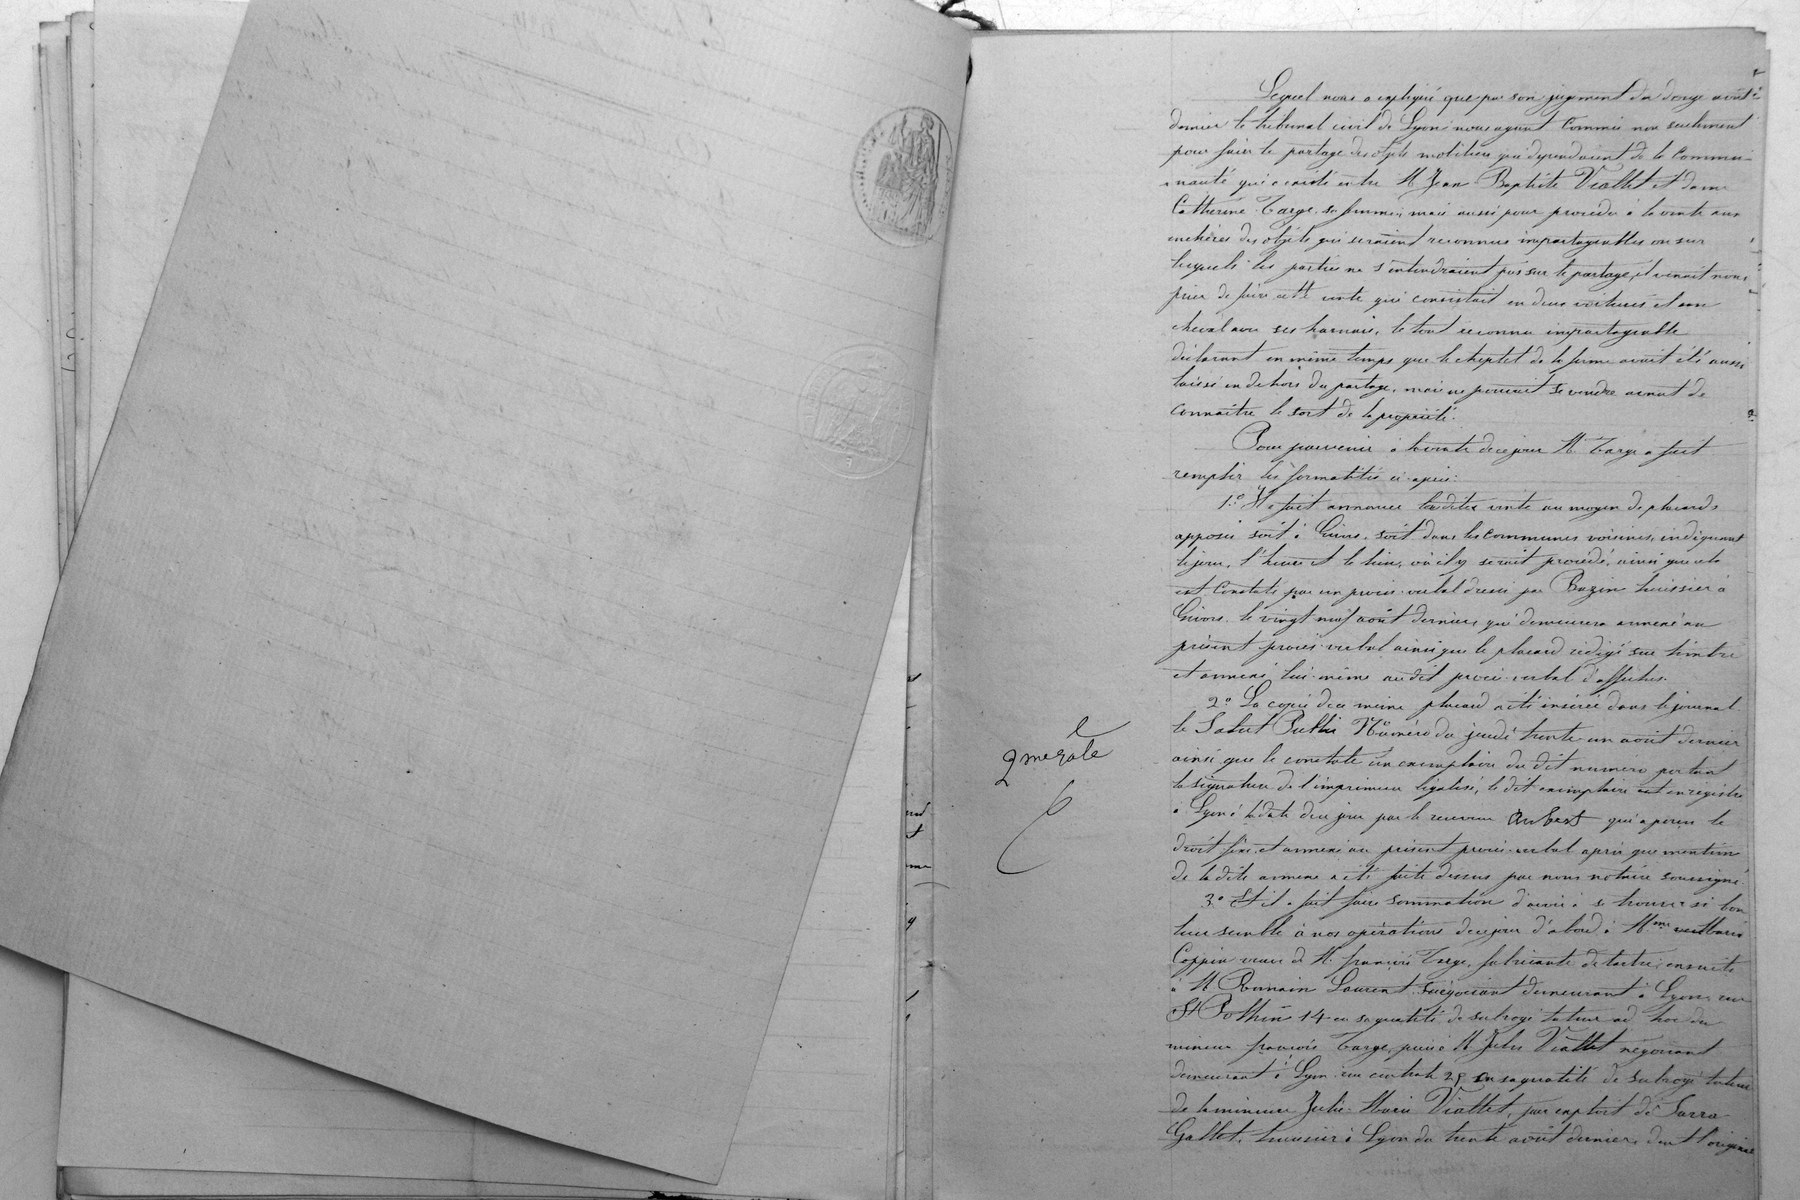 Lequel nous a expliqué que par son jugement du douze août
dernier le tribunal civil de Lyon nous ayant commis non seulement
pour faire le partage des objets mobiliers qui dépendaient de la Commu-
nauté qui a existé entre M Jean Baptiste Viallet et dame
Catherine Targe, sa femme, mais aussi pour procéder à la vente aux
enchères des objets qui seraient reconnus impartageables ou sur
lesquels les parties ne s'entendraient pas sur le partage, et venait nous
prier de faire cette vente qui consistait en deux voitures et un
cheval avec ses harnais, le tout reconnu impartageable
déclarant en même temps que le cheptel de la ferme avait été aussi
laissé en dehors du partage, mais ne pouvait se vendre avant de
connaître le sort de la propriété.
Pour parvenir à la vente de ce jour M Targe a fait
remplir les formalités ci-après:
1.º Il a fait annoncer la dite vente au moyen de placards
apposés soit à Givors, soit dans les communes voisines, indiquant
le jour, l'heure et le lieu, où il y serait procédé, ainsi que cela
est constaté par un procès-verbal dressé par Bazin huissier à
Givors le vingt neuf août dernier, qui demeurera annexé au
présent procès-verbal ainsi que le placard rédigé sur timbre
et annexé lui-même au dit procès-verbal d'affiches.
2º La copie de ce même placard a été insérée dans le journal
le Salut Public Numéro du jeudi trente un août dernier
ainsi que le constate un exemplaire du dit numéro portant
la signature de l'imprimeur légalisé, le dit exemplaire est enregistré
à Lyon à la date de ce jour par le receveur qui a perçu le
droit fixe, et annexé au présent procès-verbal après que mention
de la dite annexe a été faite dessus par nous notaire soussigné.
3º Et il a fait faire sommation d'avoir à se trouver si bon
leur semble à nos opérations de ce jour d'abord à Mme
Coppin veuve de M. François Targe, fabricante de ensuite
à M Romain Laurent négociant demeurant à Lyon, rue
St Pothin 14 en sa qualité de subrogé tuteur ad hoc du
mineur François Targe, puis à M Jules Viallet négociant
demeurant à Lyon rue centrale en sa qualité de subrogé tuteur
de la mineure Julie Marie Viallet, par exploit de Sarra-
Gallet, huissier à Lyon du trente août dernier, dont l'original
2me rôle